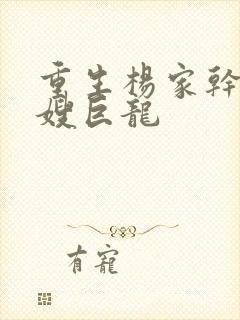 重生楊家幹
嫂巨龍
有寵